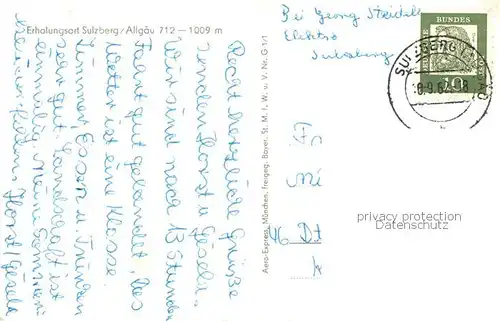 Erholungsort Sulzberg/Allgäu 712 – 1009 m
Recht herzliche Grüße
senden Horst u. Gisela.
Wir sind nach 13 Stunden
Fahrt gut gelandet. Das
Wetter ist eine Klasse.
Zimmer, Essen u. Trinken
sehr gut. Landschaft ist
Horst/Gisela
Aero-Express, München, Freigeg. Bayer. St. M. f. W. u. V. Nr. G 1/1
Bei Georg Steidele
Elektro
Sulzberg
BUNDES
10
SULZBERG
Fr
Mi
46 Dt
privacy protection
Datenschutz